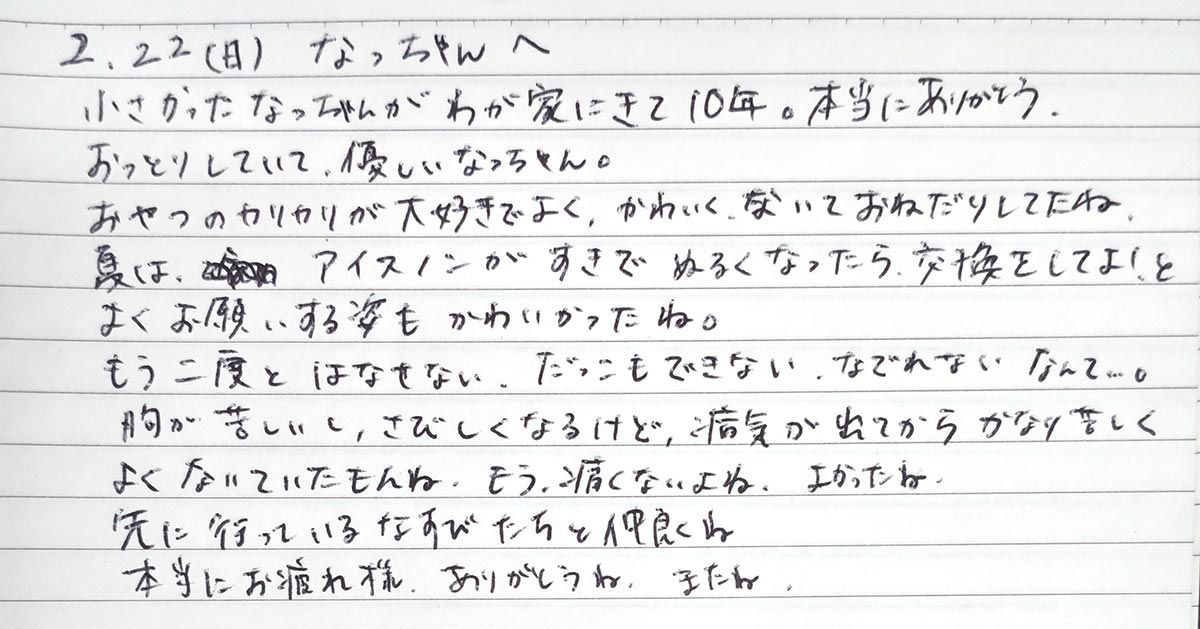 2.22(日) なっちゃんへ
小さかったなっちゃんがわが家にきて10年。本当にありがとう.
おっとりしていて、優しいなっちゃん。
おやつのカリカリが大好きでよく、かわいく、ないておねだりしてたね、
夏は、アイスノンがすきでぬるくなったら、交換をしてよ!、と
よくお願いする姿もかわいかったね。
もう二度とはなせない、だっこもできない、なでれないなんて…。
胸が苦しいし、さびしくなるけど、病気が出てからかなり苦しく
よくないていたもんね、もう、痛くないよね、よかったね、
先に行っているなすびたちと仲良くね
本当にお疲れ様、ありがとうね、またね、